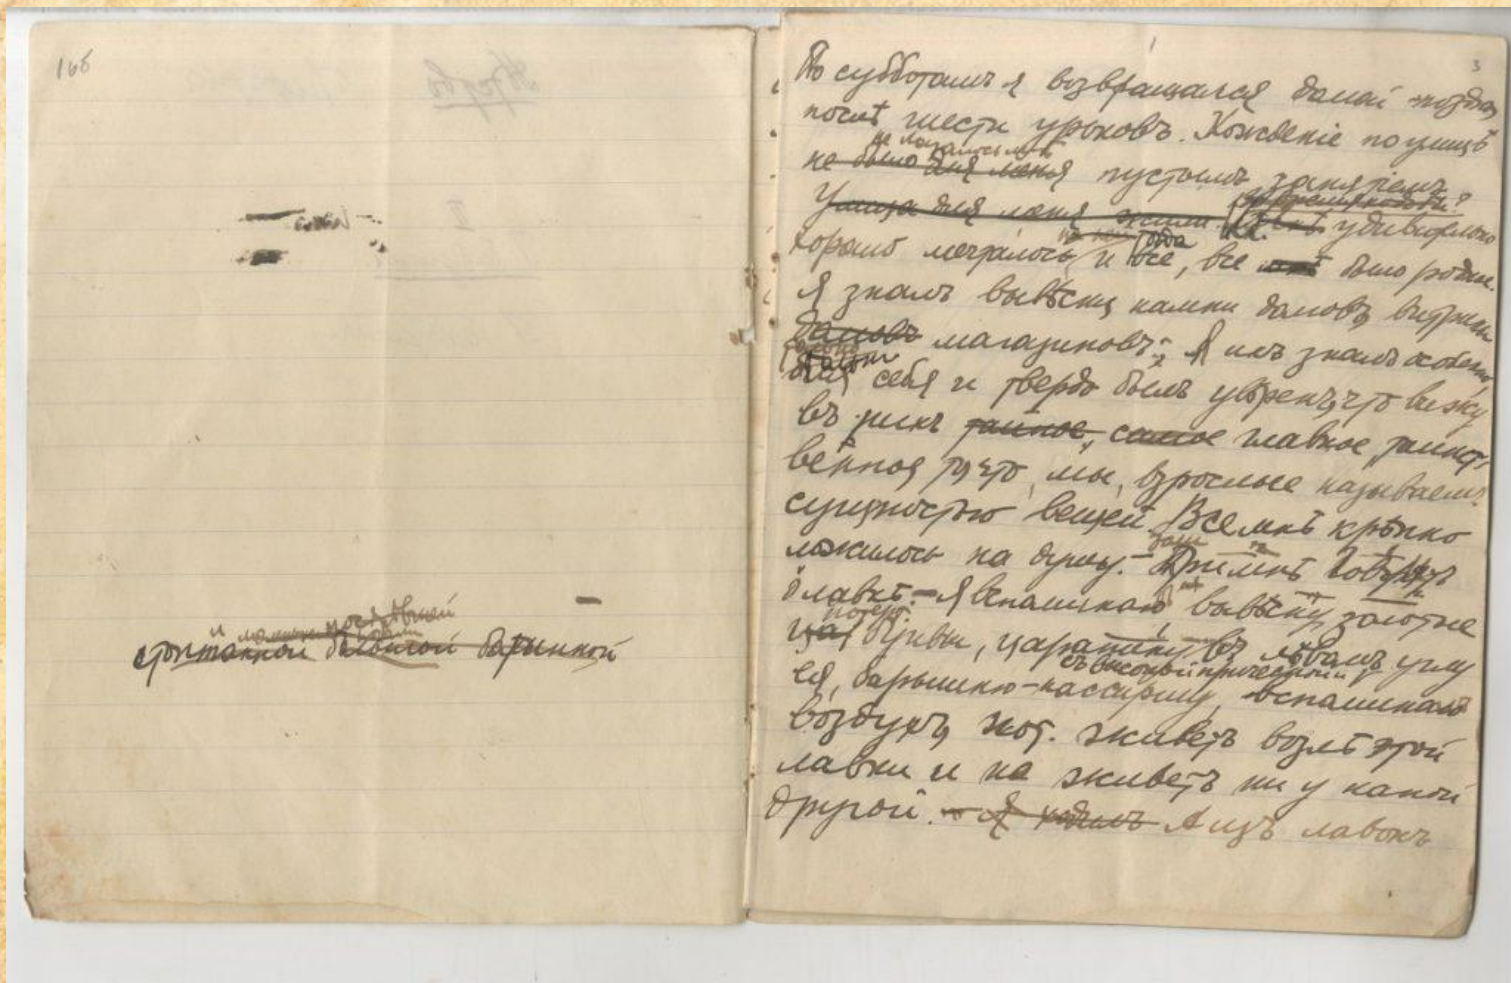 166
3
По субботамъ я возвращался домой поздно,
послѣ шести уроковъ. Хожденіе по улицѣ
не казалось мнѣ
не было для меня пустымъ занятіемъ.
во время ходьбы
Улица для меня удивительно
хорошо мечталось и все, все было родное.
Я зналъ вывѣски, камни домовъ, витрины
домовъ магазиновъ. Я ихъ зналъ особенно,
только
для себя и твердо былъ увѣренъ, что вижу
въ нихъ тайное, самое главное, таинст-
венное, то, что мы, взрослые называемъ
сущностью вещей. Все мнѣ крѣпко
ложилось на душу. При мнѣ говорятъ
о лавкѣ. – Я вспоминаю вывѣску, золотые
потерт.
буквы, царапину въ лѣвомъ углу
съ высокой прической
ея, барышню-кассиршу, вспоминаю
воздухъ, кот. живетъ возлѣ этой
лавки и не живетъ ни у какой
другой. – Я ходилъ А изъ лавокъ